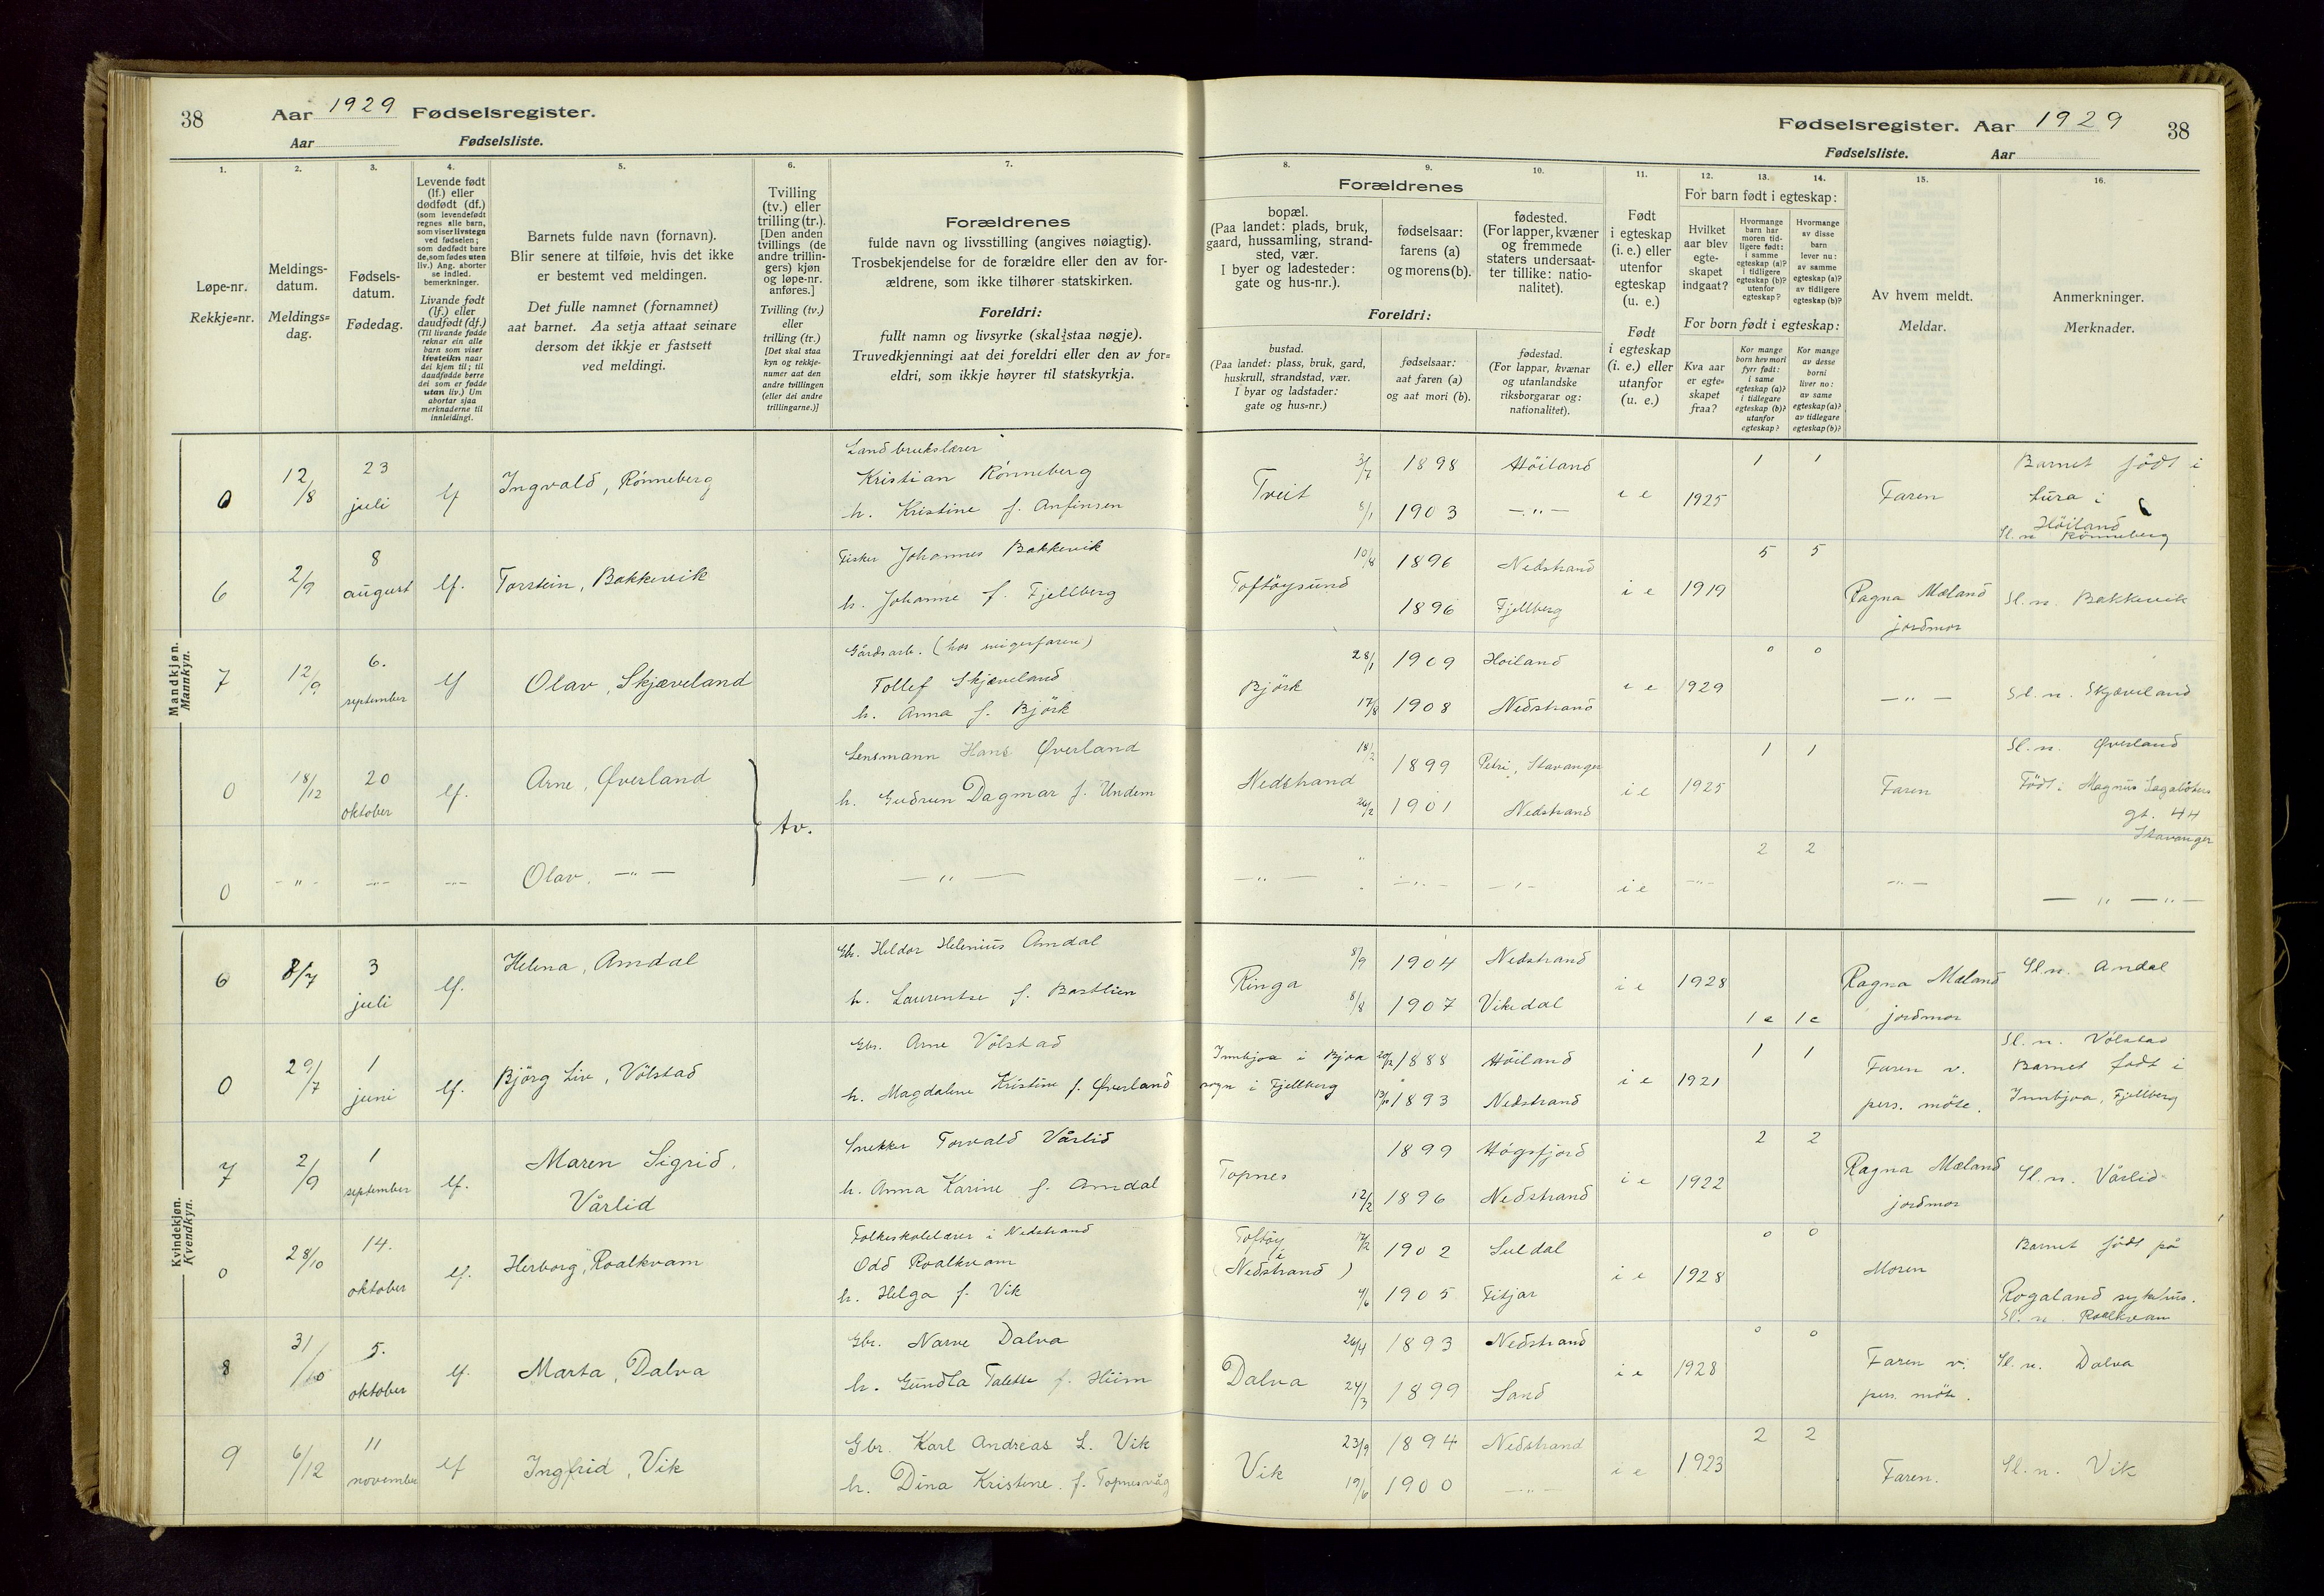 38 Aar 1929 Fødselsregister.
Aar Fødselsliste.
1. 2. 3. 4. 5. 6. 7.
Løpe-nr.
Rekkje=nr.
Meldings-
datum.
Meldings=
dag.
Fødsels-
datum.
Fødedag.
Levende født
(lf.) eller
dødfødt (df.)
(som levendefødt
regnes alle barn,
som viser livstegn
ved fødselen;
som dødfødt bare
de, som fødes uten
liv.) Ang. aborter
se indled.
bemerkninger.
Livande født
(lf.) eller
daudfødt (df.)
(Til livande fødde
reknar ein alle
barn som viser
livsteikn naar
dei kjem til; til
daudfødde berre
dei som er fødde
utan liv.) Um
abortar sjaa
merknaderne til
innleidingi.
Barnets fulde navn (fornavn).
Blir senere at tilføie, hvis det ikke
er bestemt ved meldingen.
Det fulle namnet (fornamnet)
aat barnet. Aa setja attaat seinare
dersom det ikkje er fastsett
ved meldingi.
Tvilling
(tv.) eller
trilling (tr.).
[Den anden
tvillings (de
andre trillin-
gers) kjøn
og løpe-nr.
anføres.]
Tvilling (tv.)
eller
trilling (tr.)
[Det skal staa
kyn og rekkje-
numer aat den
andre tvillingen
(eller dei andre
trillingarne.)]
Forældrenes
fulde navn og livsstilling (angives nøiagtig).
Trosbekjendelse for de forældre eller den av for-
ældrene, som ikke tilhører statskirken.
Foreldri:
fullt namn og livsyrke (skal staa nøgje).
Truvedkjenningi aat dei foreldri eller den av for=
eldri, som ikkje høyrer til statskyrkja.
Mandkjøn.
Mannkyn.
0 12/8 23 juli lf Ingvald, Rönneberg
Landbrukslærer
Kristian Rönneberg
h. Kristine f. Anfinsen
6 2/9 8 august lf. Torstein, Bakkevik
Fisker Johannes Bakkevik
h. Johanne f. Fjellberg
7 12/9 6. september lf Olav, Skjæveland
Gårdsarb. (hos svigerfaren)
Tollef Skjæveland
h. Anna f. Björk
0 18/12 20 oktober lf. Arne, Øverland
tv.
Lensmann Hans Øverland
h. Gudrun Dagmar f. Undem
0 - " - - " - - " - Olav. - " - - " -
Kvindekjøn.
Kvendkyn.
6 8/7 3 juli lf. Helena, Amdal
Gbr. Heldor Helenius Amdal
h. Laurentse f. Bastlien
0 29/7 1 juni lf. Björg Liv, Völstad
Gbr. Arne Völstad
h. Magdalene Kristine f. Øverland
7 2/9 1 september lf. Maren Sigrid,
Vårlid
Snekker Torvald Vårlid
h. Anna Karine f. Amdal
0 28/10 14. oktober lf. Herborg, Roalkvam
Folkeskolelærer i Nedstrand
Odd Roalkvam
h. Helga f. Vik
8 31/10 5. oktober lf. Marta, Dalva
Gbr. Narve Dalva
h. Gundla Talette f. Hiim
9 6/12 11 november lf Ingfrid, Vik
Gbr. Karl Andreas L. Vik
h. Dina Kristine. f. Topnesvåg
Fødselsregister. Aar 1929 38
Fødselsliste. Aar
8. 9. 10. 11. 12. 13. 14. 15. 16.
Forældrenes
bopæl.
(Paa landet: plads, bruk,
gaard, hussamling, strand-
sted, vær.
I byer og ladesteder:
gate og hus-nr.).
fødselsaar:
farens (a)
og morens (b).
fødested.
(For lapper, kvæner
og fremmede
staters undersaat-
ter tillike: natio-
nalitet).
Foreldri:
bustad.
(Paa landet: plass, bruk, gard,
huskrull, strandstad, vær.
I byar og ladstader:
gate og hus=nr.)
fødselsaar:
aat faren (a)
og aat mori (b).
fødestad.
(For lappar, kvænar
og utanlandske
riksborgarar og:
nationalitet).
Født
i egteskap
(i. e.) eller
utenfor
egteskap
(u. e.)
Født
i egteskap
(i. e.) eller
utanfor
(u. e.)
For barn født i egteskap:
Hvilket
aar blev
egte-
skapet
indgaat?
Hvormange
barn har
moren tid-
ligere født:
i samme
egteskap (a)?
i tidligere
egteskap (b)?
utenfor
egteskap?
Hvormange
av disse
barn
lever nu:
av samme
egteskap (a)?
av tidligere
egteskap (b)?
For born født i egteskap:
Kva aar
er egte=
skapet
fraa?
Kor mange
born hev mori
fyrr født:
i same
egteskap (a)?
i tidlegare
egteskap (b)?
utanfor
egteskap?
Kor mange
av desse
borni
liver no:
av same
egteskap (a)?
av tidlegare
egteskap (b)?
Av hvem meldt.
Meldar.
Anmerkninger.
Merknader.
Tveit 3/7 1898 Höiland
8/1 1903 - " - i e 1925 1 1 Faren
Barnet födt i
tura i
Höiland
Sl. n. Rönneberg
Toftöysund 10/8 1896 Nedstrand
1896 Fjellberg i e 1919 5 5
Ragna Mæland
jordmor
Sl. n. Bakkevik
Björk 28/1 1909 Höiland
17/8 1908 Nedstrand i e 1929 0 0 - " - Sl. n. Skjæveland
Nedstrand 18/2 1899 Petri, Stavanger
26/2 1901 Nedstrand i e 1925 1 1 Faren
Sl. n. Øverland
Födt i Magnus Lagabøters
gt. 44
Stavanger
- " - - " - - " - i e - " - 2 2 - " - - " - " -
Ringa 8/9 1904 Nedstrand
8/8 1907 Vikedal i e 1928 1 e 1 e
Ragna Mæland
jordmor
Sl. n. Andal
Innbjoa i Bjoa
sogn i Fjellberg
20/12 1888 Höiland
13/10 1893 Nedstrand i e 1921 1 1
Faren v.
pers. möte.
Sl. n. Völstad
Barnet födt i
Innbjoa, Fjellberg
Topnes 1899 Högsfjord
12/2 1896 Nedstrand i e 1922 2 2
Ragna Mæland
jordmor
Sl. n. Vårlid
Toftöy
i
(Nedstrand)
17/2 1902 Suldal
4/6 1905 Fitjar i e 1928 0 0 Moren
Barnet födt på
Rogaland sykehus.
Sl. n. Roalkvam
Dalva 26/4 1893 Nedstrand
24/3 1899 Sand i e 1928 0 0
Faren v.
pers. möte.
Sl. n. Dalva
Vik 23/9 1894 Nedstrand
19/6 1900 - " - i e 1923 2 2 Faren. Sl. n. Vik